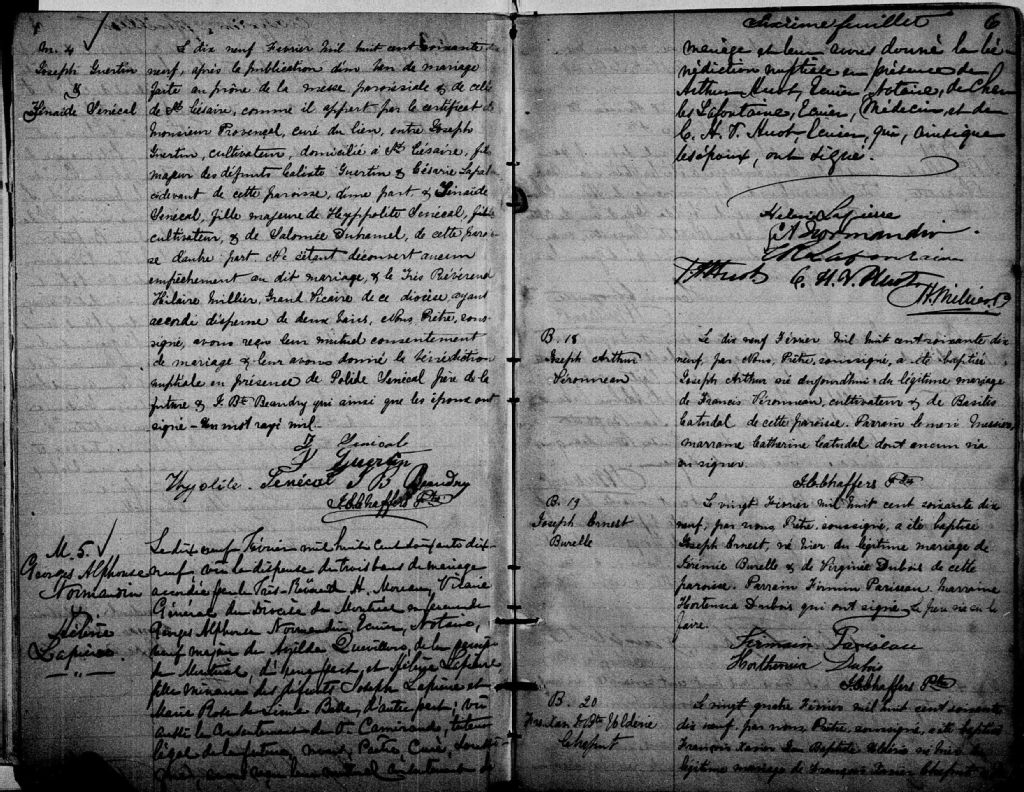 M. 4
Joseph Guertin
&
Zénaïde Senécal
Le dix neuf Février mil huit cent soixante dix
neuf, après la publication d'un ban de mariage
faite au prône de la messe paroissiale & de celle
de St Césaire, comme il appert par le certificat de
Monsieur Provençal, curé du lieu, entre Joseph
Guertin, cultivateur, domicilié à St Césaire, fils
majeur des défunts Calixte Guertin & Césarie
ci devant de cette paroisse, d'une part & Zénaïde
Senécal, fille majeure de Hyppolite Senécal,
cultivateur, & de Salomée Duhamel, de cette parois-
se d'autre part. Ne s'étant découvert aucun
empêchement au dit mariage, & le Très Révérend
Hilaire Millier, Grand Vicaire de ce diocèse ayant
accordé dispense de deux bans, Nous, Prêtre, sous-
signé, avons reçu leur mutuel consentement
de mariage & leur avons donné la bénédiction
nuptiale en présence de Senécal frère de la
future & J. Bte Beaudry qui ainsi que les époux ont
signé - Un mot rayé nul.
Z Senécal
J Guertin
Hypolite Senécal J B Beaudry
J.C. Chaffers Ptre
M. 5.
Georges Alphonse
Normandin
&
Hélène
Lapierre.
Le dix neuf Février mil huit cent soixante dix
neuf, vu la dispense de trois bans de mariage
accordée par le Très Révérend H. Moreau, Vicaire
Général du Diocèse de Montréal
Georges Alphonse Normandin, Ecuier, Notaire,
veuf majeur de Azilda Quevillon, de la paroisse
de Montréal, d'une part, et Hélène Lapierre
fille mineure des défunts Joseph Lapierre et
Marie Rose de Lima d'autre part; vu
aussi le consentement de tuteur
légal de la future, nous, Prêtre, Curé, soussi-
gné, avons reçu leur mutuel consentement de
Sixième feuillet 6
mariage et leur avons donné la bé-
nédiction nuptiale en présence de
Arthur Huot, Ecuier, Notaire, de Char
les Lafontaine, Ecuier, Médecin, et de
C. H. V. Huot, Ecuier, qui, ainsi que
les époux, ont signé.
Hélène Lapierre
G A Normandin
Lafontaine
Huot C. H. V. Huot
H. Millier
B. 18
Joseph Arthur
Véronneau
Le dix neuf Février mil huit cent soixante dix
neuf, par Nous, Prêtre, soussigné, a été baptisé
Joseph Arthur né aujourd'hui du légitime mariage
de Francis Véronneau, cultivateur & de Basilisse
Catudal de cette paroisse. Parrain Messier,
marraine Catherine Catudal dont aucun n'a
su signer.
J.C. Chaffers Ptre
B. 19
Joseph Ernest
Burelle
Le vingt Février mil huit cent soixante dix
neuf, par nous Prêtre, soussigné, a été baptisé
Joseph Ernest, né hier du légitime mariage de
Jérémie Burelle & de Virginie Dubois de cette
paroisse. Parrain Firmin Pariseau, Marraine
Hortensia Dubois qui ont signé. Le père n'a su le
faire.
Firmain Pariseau
Horthensia Dubois
J.C. Chaffers Ptre
B. 20
Chaput
Le vingt quatre Février mil huit cent soixante
dix neuf par nous Prêtre, soussigné, a été baptisé
François Xavier Jn Baptiste né hier du
légitime mariage de François Xavier Chaput